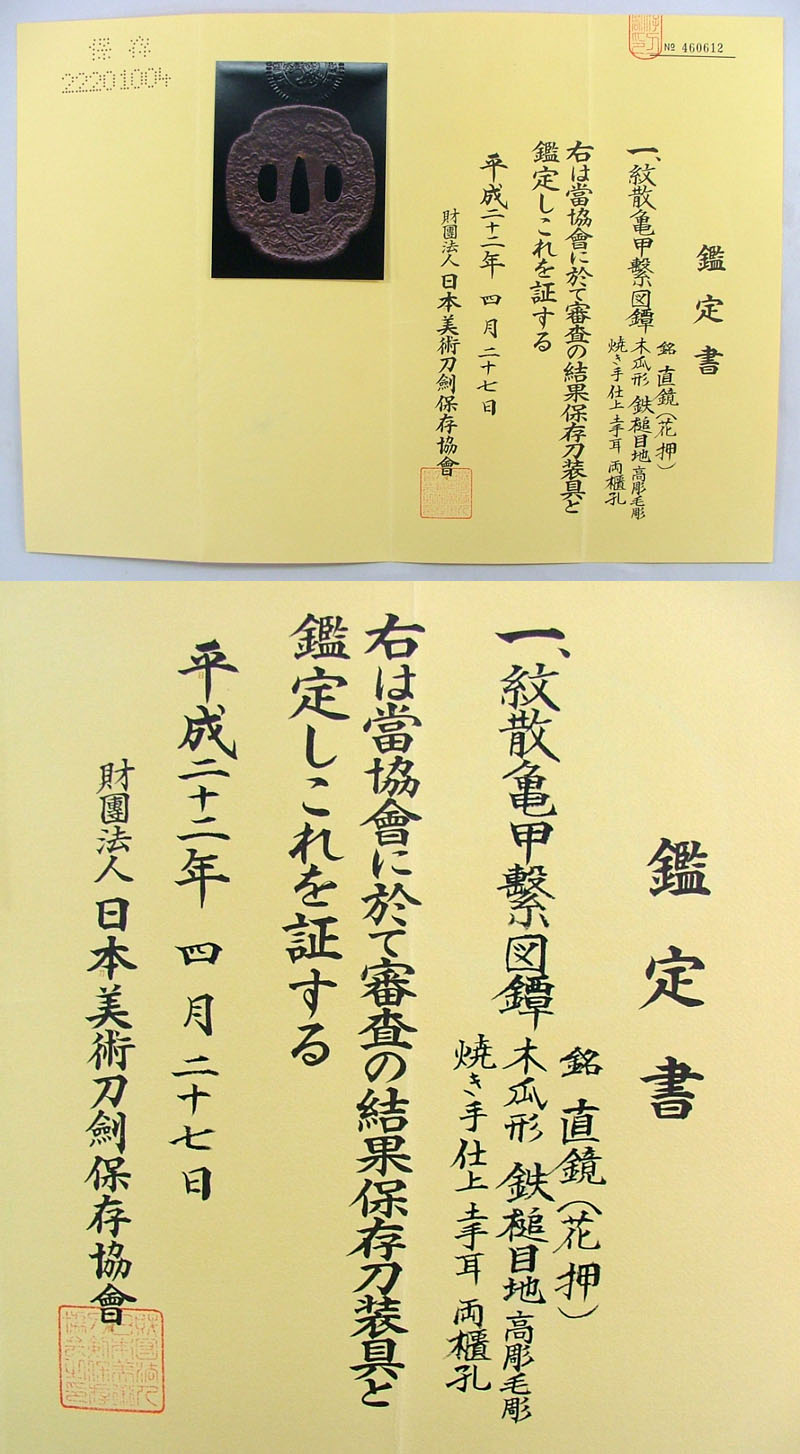 保存
22201004
№ 460612
鑑定書
一、紋散亀甲繋図鐔
銘 直鏡(花押)
木瓜形 鉄槌目地 高彫毛彫
焼き手仕上 土手耳 両櫃孔
右は當協會に於て審査の結果保存刀装具と
鑑定しこれを証する
平成二十二年 四月二十七日
財團法人 日本美術刀劍保存協會
鑑定書
一、紋散亀甲繋図鐔
銘 直鏡(花押)
木瓜形 鉄槌目地 高彫毛彫
焼き手仕上 土手耳 両櫃孔
右は當協會に於て審査の結果保存刀装具と
鑑定しこれを証する
平成二十二年 四月二十七日
財團法人 日本美術刀劍保存協會